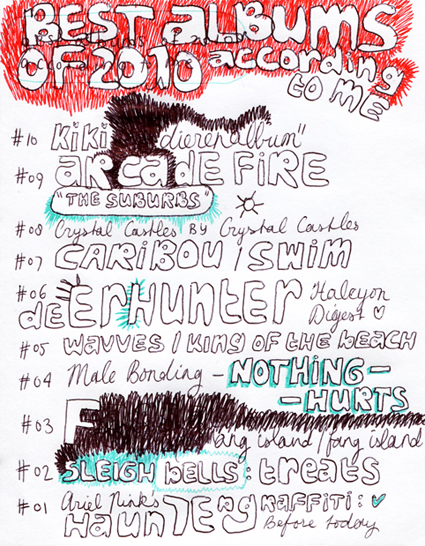 BEST ALBUMS
OF 2010 according
to ME
#10 KiKi dierenalbum"
#09 arcade FiRE
"THE SUBURBS"
#08 Crystal Castles By Crystal Castles
#07 CARIBOU / SWIM
#06 deerHunter Halcyon
Digest
#05 wavves / king of the beach
#04 Male Bonding - NOTHING-
-HURTS
#03 F
fang island / fang island
#02 SLEIGH bells: treats
#01 Ariel Pink's
HaunTEg RAFFiTi:
Before today